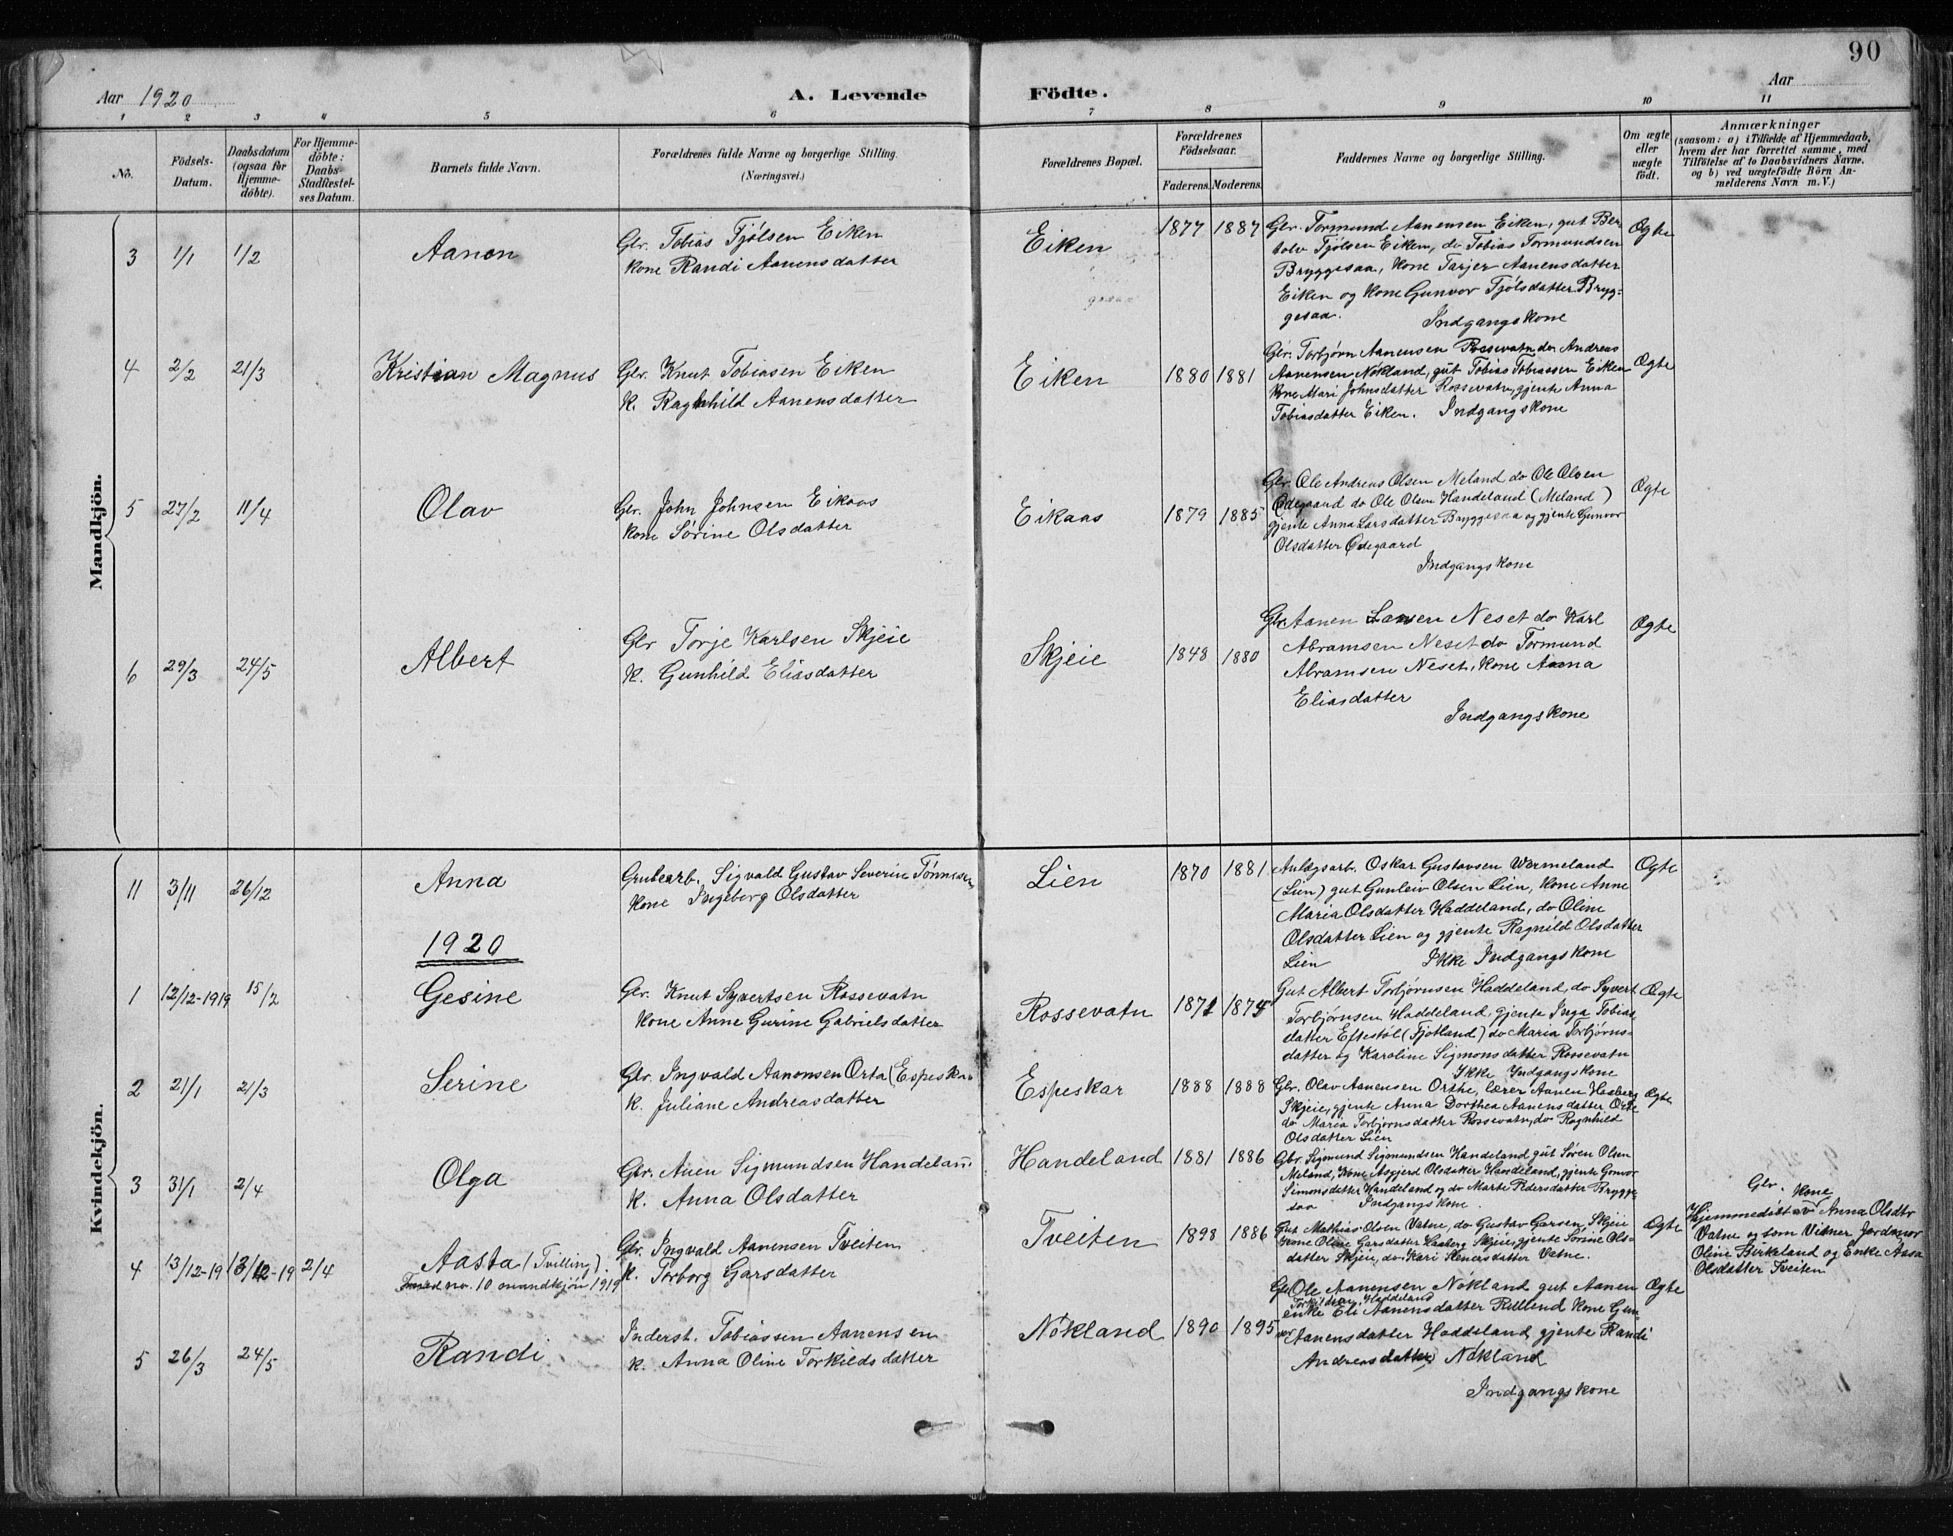 90
Aar 1920
A. Levende Födte.
Aar
1 2 3 4 5 6 7 8 9 10 11
No.
Födsels-
Datum.
Daabsdatum
(ogsaa for
Hjemme-
döbte).
For Hjemme-
döbte:
Daabs-
Stadfæstel-
ses Datum.
Barnets fulde Navn.
Forældrenes fulde Navne og borgerlige Stilling.
(Næringsvei.)
Forældrenes Bopæl.
Forældrenes
Födselsaar.
Faderens. Moderens.
Faddernes Navne og borgerlige Stilling.
Om ægte
eller
uægte
födt.
Anmærkninger
(saasom: a) i Tilfælde af Hjemmedaab,
hvem der har forrettet samme, med
Tilföielse af to Daabsvidners Navne,
og b) ved uægtefödte Börn An-
melderens Navn m. V.)
Mandkjön.
3 1/1 1/2 Aanon
Gbr. Tobias Tjølsen Eiken
kone Randi Aanensdatter
Eiken 1877 1887
Gbr. Tormund Aanensen Eiken, gut Ber-
tolv Tjølsen Eiken, do Tobias Tormundsen
Bryggesaa, kone Tarjer Aanensdatter
Eiken og kone Gunvor Tjølsdatter Bryg-
gesaa. Indgangskone
Ægte
4 2/2 21/3 Kristian Magnus
Gbr. Knut Tobiasen Eiken
k. Ragnhild Aanensdatter
Eiken 1880 1881
Gbr. Torbjørn Aanensen Rossevatn do Andreas
Aanensen Nøkland, gut Tobias Tobiassen Eiken
kone Mari Johnsdatter Rossevatn, gjente Anna
Tobiasdatter Eiken. Indgangskone
Ægte
5 27/2 11/4 Olav
Gbr. John Johnsen Eikaas
kone Sørine Olsdatter
Eikaas 1879 1885
Gbr. Ole Andreas Olsen Meland do Ole Olsen
Ødegaard do Ole Olsen Handeland (Meland)
gjente Anna Larsdatter Bryggesaa og gjente Gunvor
Olsdatter Ødegaard
Indgangskone
Ægte
6 29/3 24/5 Albert
Gbr Torje Karlsen Skjeie
k. Gunhild Eliasdatter
Skjeie 1848 1880
Gbr Aanen Larsen Neset do Karl
Abramsen Neset do Tormund
Abramsen Neset, kone Anna
Eliasdatter
Indgangskone
Ægte
Kvindekjön.
11 3/11 26/12 Anna
Grubearb. Sigvald Gustav Severin Tønnesen
kone Ingeborg Olsdatter
Lien 1870 1881
Anlægsarb. Oskar Gustavsen Wærmeland
(Lien) gut Gunleiv Olsen Lien, kone Anne
Maria Olsdatter Haddeland, do Oline
Olsdatter Lien og gjente Ragnild Olsdatter
Lien Ikke Indgangskone
Ægte
1920
1 12/12-1919 15/2 Gesine
Gbr. Knut Syvertsen Rossevatn
kone Anne Gurine Gabrielsdatter
Rossevatn 1871 1875
Gut Albert Torbjørnsen Haddeland, do Syvert
Torbjørnsen Haddeland, gjente Inga Tobias
datter Eftestøl (Fjotland) do Maria Torbjørns-
datter og Karoline Sigmonsdatter Rossevatn
Ikke Indgangskone
Ægte
2 21/1 21/3 Serine
Gbr. Ingvald Aanonsen Orta (Espeskar
k. Juliane Andreasdatter
Espeskar 1888 1888
Gbr. Olav Aanensen Orthe, lærer Aanen Haaberg
Skjeie, gjente Anna Dorthea Aanensdatter Orte
do Maria Torbjørnsdatter Rossevatn, do Ragnhild
Olsdatter Lien
Ægte
3 31/1 2/4 Olga
Gbr. Auen Sigmundsen Handeland
k. Anna Olsdatter
Handeland 1881 1886
Gbr. Sigmund Sigmundsen Handeland gut Søren Olsen
Meland, kone Asgjerd Olsdatter Handeland, gjente Gunvor
Simonsdatter Handeland og do Marte Pedersdatter Brygge-
saa Indgangskone
4 13/12-19 13/12-19 2/4 Aasta (Tvilling)
no. 10 mandkjøn 1919
Gbr. Ingvald Aanensen Tveiten
k. Torborg Garsdatter
Tveiten 1898 1886
Gut Mathias Olsen Vatne, do Gustav Garsen Skjeie
kone Oline Garsdatter Haaberg Skjeie, gjente Sørine Ols-
datter Skjeie, do Kari Henersdatter Vatne.
Ægte
Gbr. kone
Hjemmedøbt av Anna Olsdtr
Vatne og som Vidner Jordmor
Oline Birkeland og Enke Aasa
Olsdatter Tveiten
5 26/3 24/5 Randi
Inderst. Tobiassen Aanensen
k. Anna Oline Torkildsdatter
Nøkland 1890 1895
Gbr Ole Aanensen Nøkland gut Aanen
Torkildsen Haddeland
enke Eli Aanensdatter kone Gun
vor Aanensdatter Haddeland gjente Randi
Andreasdatter Nøkland
Indgangskone
Ægte